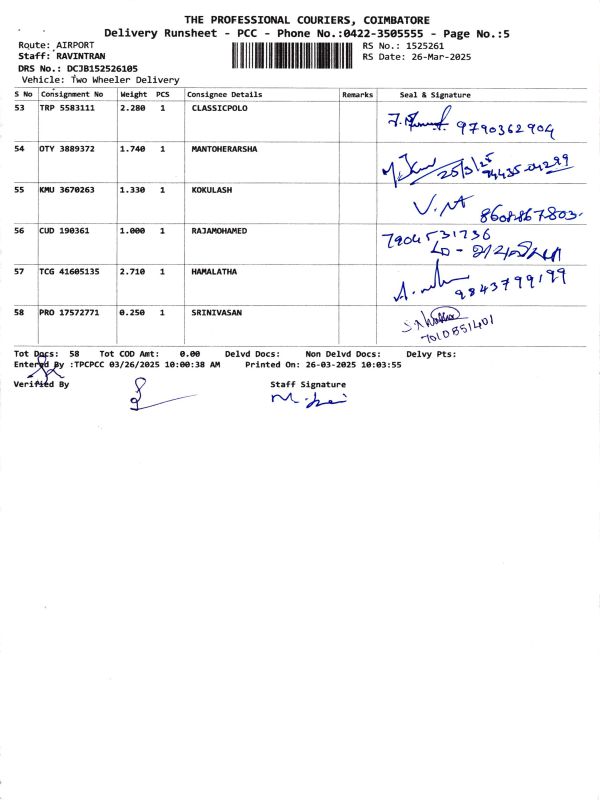 THE PROFESSIONAL COURIERS, COIMBATORE
Delivery Runsheet - PCC - Phone No.:0422-3505555 - Page No.:5
Route: AIRPORT RS No.: 1525261
Staff: RAVINTRAN RS Date: 26-Mar-2025
DRS No.: DCJB152526105
Vehicle: Two Wheeler Delivery
S No Consignment No Weight PCS Consignee Details Remarks Seal & Signature
53 TRP 5583111 2.280 1 CLASSICPOLO
9790362904
54 OTY 3889372 1.740 1 MANTOHERARSHA
25/3/25
55 KMU 3670263 1.330 1 KOKULASH
8608867803
56 CUD 190361 1.000 1 RAJAMOHAMED
7904531736
57 TCG 41605135 2.710 1 HAMALATHA
9843799199
58 PRO 17572771 0.250 1 SRINIVASAN
7010851401
Tot Docs: 58 Tot COD Amt: 0.00 Delvd Docs: Non Delvd Docs: Delvy Pts:
Entered By :TPCPCC 03/26/2025 10:00:38 AM Printed On: 26-03-2025 10:03:55
Verified By Staff Signature